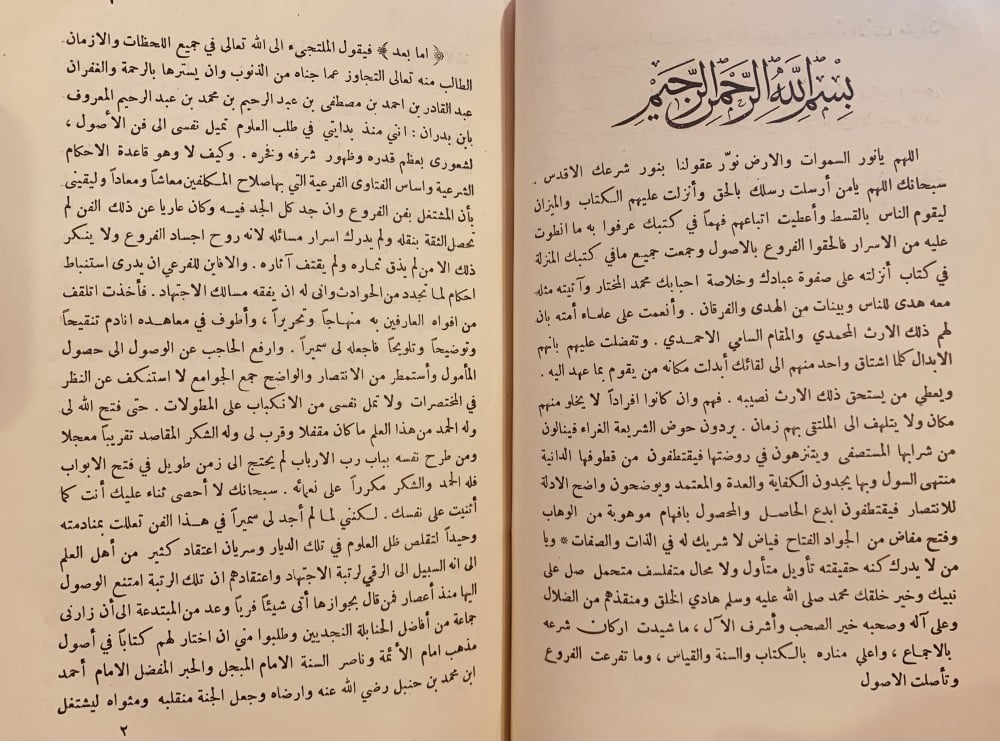 بسم الله الرحمن الرحيم
اللهم يانور السموات والارض نوّر عقولنا بنور شرعك الاقدس .
سبحانك اللهم يامن أرسلت رسلك بالحق وأنزلت عليهم الكتاب والميزان
ليقوم الناس بالقسط وأعطيت اتباعهم فهماً في كتبك عرفوا به ما انطوت
عليه من الاسرار فالحقوا الفروع بالاصول وجمعت جميع مافي كتبك المنزلة
في كتاب أنزلته على صفوة عبادك وخلاصة احبابك محمد المختار وآتيته مثله
معه هدى للناس وبينات من الهدى والفرقان . وأنعمت على علماء أمته بان
لهم ذلك الارث المحمدي والمقام السامي الاحمدي . وتفضلت عليهم بانهم
الابدال كلما اشتاق واحد منهم الى لقائك أبدلت مكانه من يقوم بما عهد اليه .
ويعطي من يستحق ذلك الارث نصيبه . فهم وان كانوا افراداً لا يخلو منهم
مكان ولا يتلهف الى الملتقى بهم زمان . يردون حوض الشريعة الغراء فينالون
من شرابها المستصفى ويتنزهون في روضتها فيقتطفون من قطوفها الدانية
منتهى السول وبها يجدون الكفاية والعدة والمعتمد ويوضحون واضح الادلة
للانتصار فيقتطفون ابدع الحاصل والمحصول بافهام موهوبة من الوهاب
وفتح مفاض من الجواد الفتاح فياض لا شريك له في الذات والصفات * ويا
من لا يدرك كنه حقيقته تأويل متأول ولا محال متفلسف متحمل صل على
نبيك وخير خلقك محمد صلى الله عليه وسلم هادي الخلق ومنقذهم من الضلال
وعلى آله وصحبه خير الصحب وأشرف الآل ، ما شيدت اركان شرعه
بالاجماع ، واعلي مناره بالكتاب والسنة والقياس ، وما تفرعت الفروع
وتأصلت الاصول
﴿ اما بعد ﴾ فيقول الملتجىء الى الله تعالى في جميع اللحظات والازمان
الطالب منه تعالى التجاوز عما جناه من الذنوب وان يسترها بالرحمة والغفران
عبد القادر بن احمد بن مصطفى بن عبد الرحيم بن محمد بن عبد الرحيم المعروف
بابن بدران : انني منذ بدايتي في طلب العلوم تميل نفسى الى فن الأصول ،
لشعورى بعظم قدره وظهور شرفه وفخره . وكيف لا وهو قاعدة الاحكام
الشرعية واساس الفتاوى الفرعية التي بهاصلاح المكلفين معاشاً ومعاداً وليقيني
بأن المشتغل بفن الفروع وان جد كل الجد فيه وكان عاريا عن ذلك الفن لم
تحصل الثقة بنقله ولم يدرك اسرار مسائله لانه روح اجساد الفروع ولا ينكر
ذلك الا من لم يذق ثماره ولم يقتف آثاره . والافاين للفرعي ان يدرى استنباط
احكام لما تجدد من الحوادث وانى له ان يفقه مسالك الاجتهاد . فأخذت اتلقف
من افواه العارفين به منهاجاً وتحريراً ، وأطوف في معاهده انادم تنقيحاً
وتوضيحاً وتلويحاً فاجعله لى سميراً . وارفع الحاجب عن الوصول الى حصول
المأمول وأستمطر من الانتصار والواضح جمع الجوامع لا استنكف عن النظر
في المختصرات ولا تمل نفسى من الانكباب على المطولات . حتى فتح الله لى
وله الحمد من هذا العلم ما كان مقفلا وقرب لى وله الشكر المقاصد تقريباً معجلا
ومن طرح نفسه بباب رب الارباب لم يحتج الى زمن طويل في فتح الابواب
فله الحمد والشكر مكرراً على نعمائه . سبحانك لا أحصى ثناء عليك أنت كما
أثنيت على نفسك . لكنني لما لم أجد لى سميراً في هذا الفن تعللت بمنادمته
وحيداً لتقلص ظل العلوم في تلك الديار وسريان اعتقاد كثير من أهل العلم
الى انه السبيل الى الرقي لرتبة الاجتهاد واعتقادهم ان تلك الرتبة امتنع الوصول
اليها منذ أعصار فمن قال بجوازها أتى شيئاً فرياً وعد من المبتدعة الى أن زارنى
جماعة من أفاضل الحنابلة النجديين وطلبوا مني ان اختار لهم كتابا في أصول
مذهب امام الأئمة وناصر السنة الامام المبجل والحبر المفضل الامام أحمد
ابن محمد بن حنبل رضي الله عنه وارضاه وجعل الجنة منقلبه ومثواه ليشتغل
٢